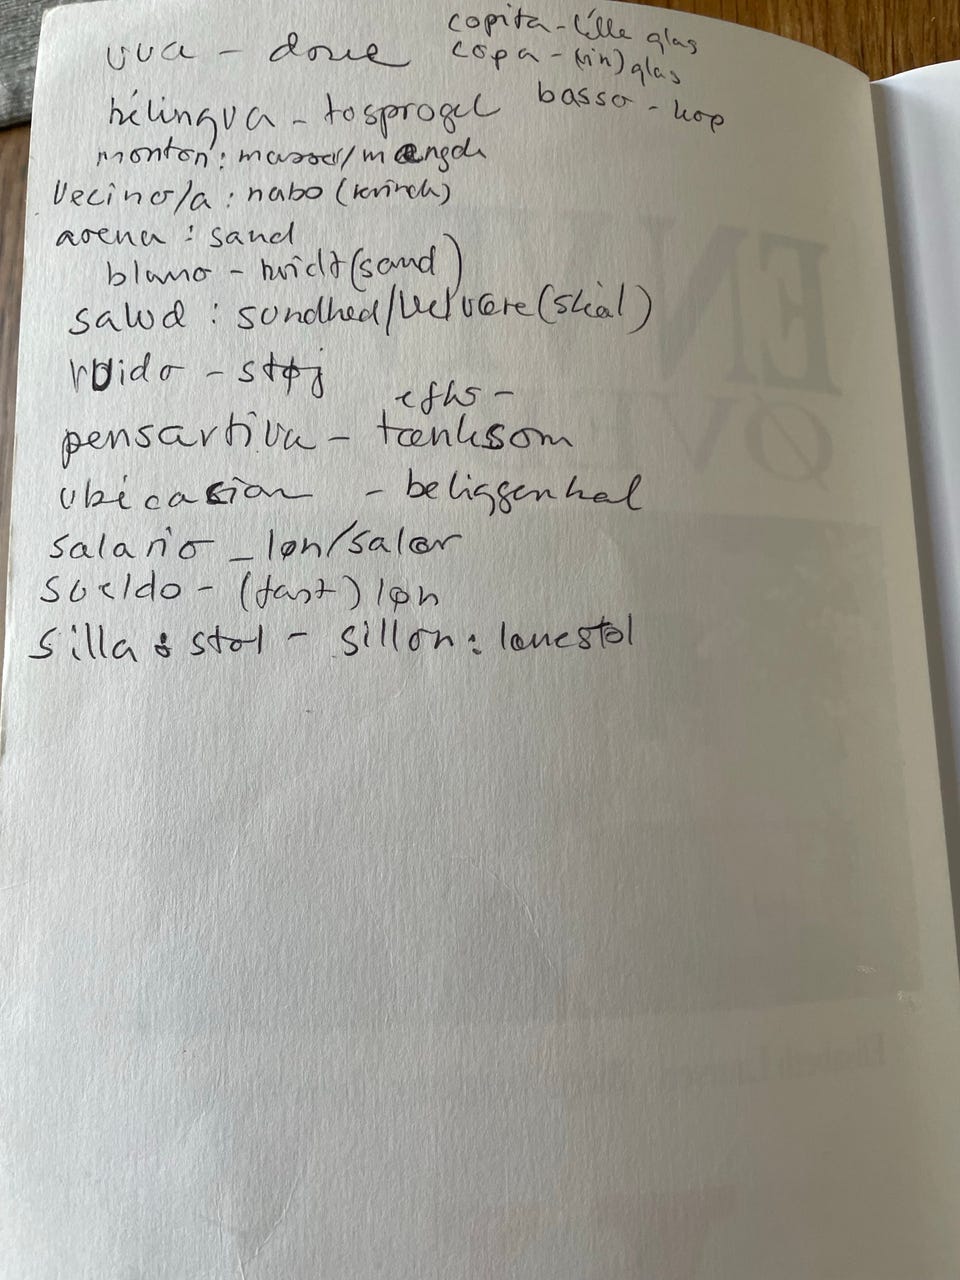 uva - drue
copita - lille glas
copa - (vin)glas
basso - kop
bilingva - tosproget
monton: masser/mængde
Vecino/a: nabo (kvinde)
arena: sand
blano - hvidt (sand)
salud: sundhed/velvære (skål)
ruido - støj
efts -
pensartiva - tænksom
ubicasion - beliggenhed
salario - løn/salær
sueldo - (fast) løn
silla: stol - sillon: lænestol